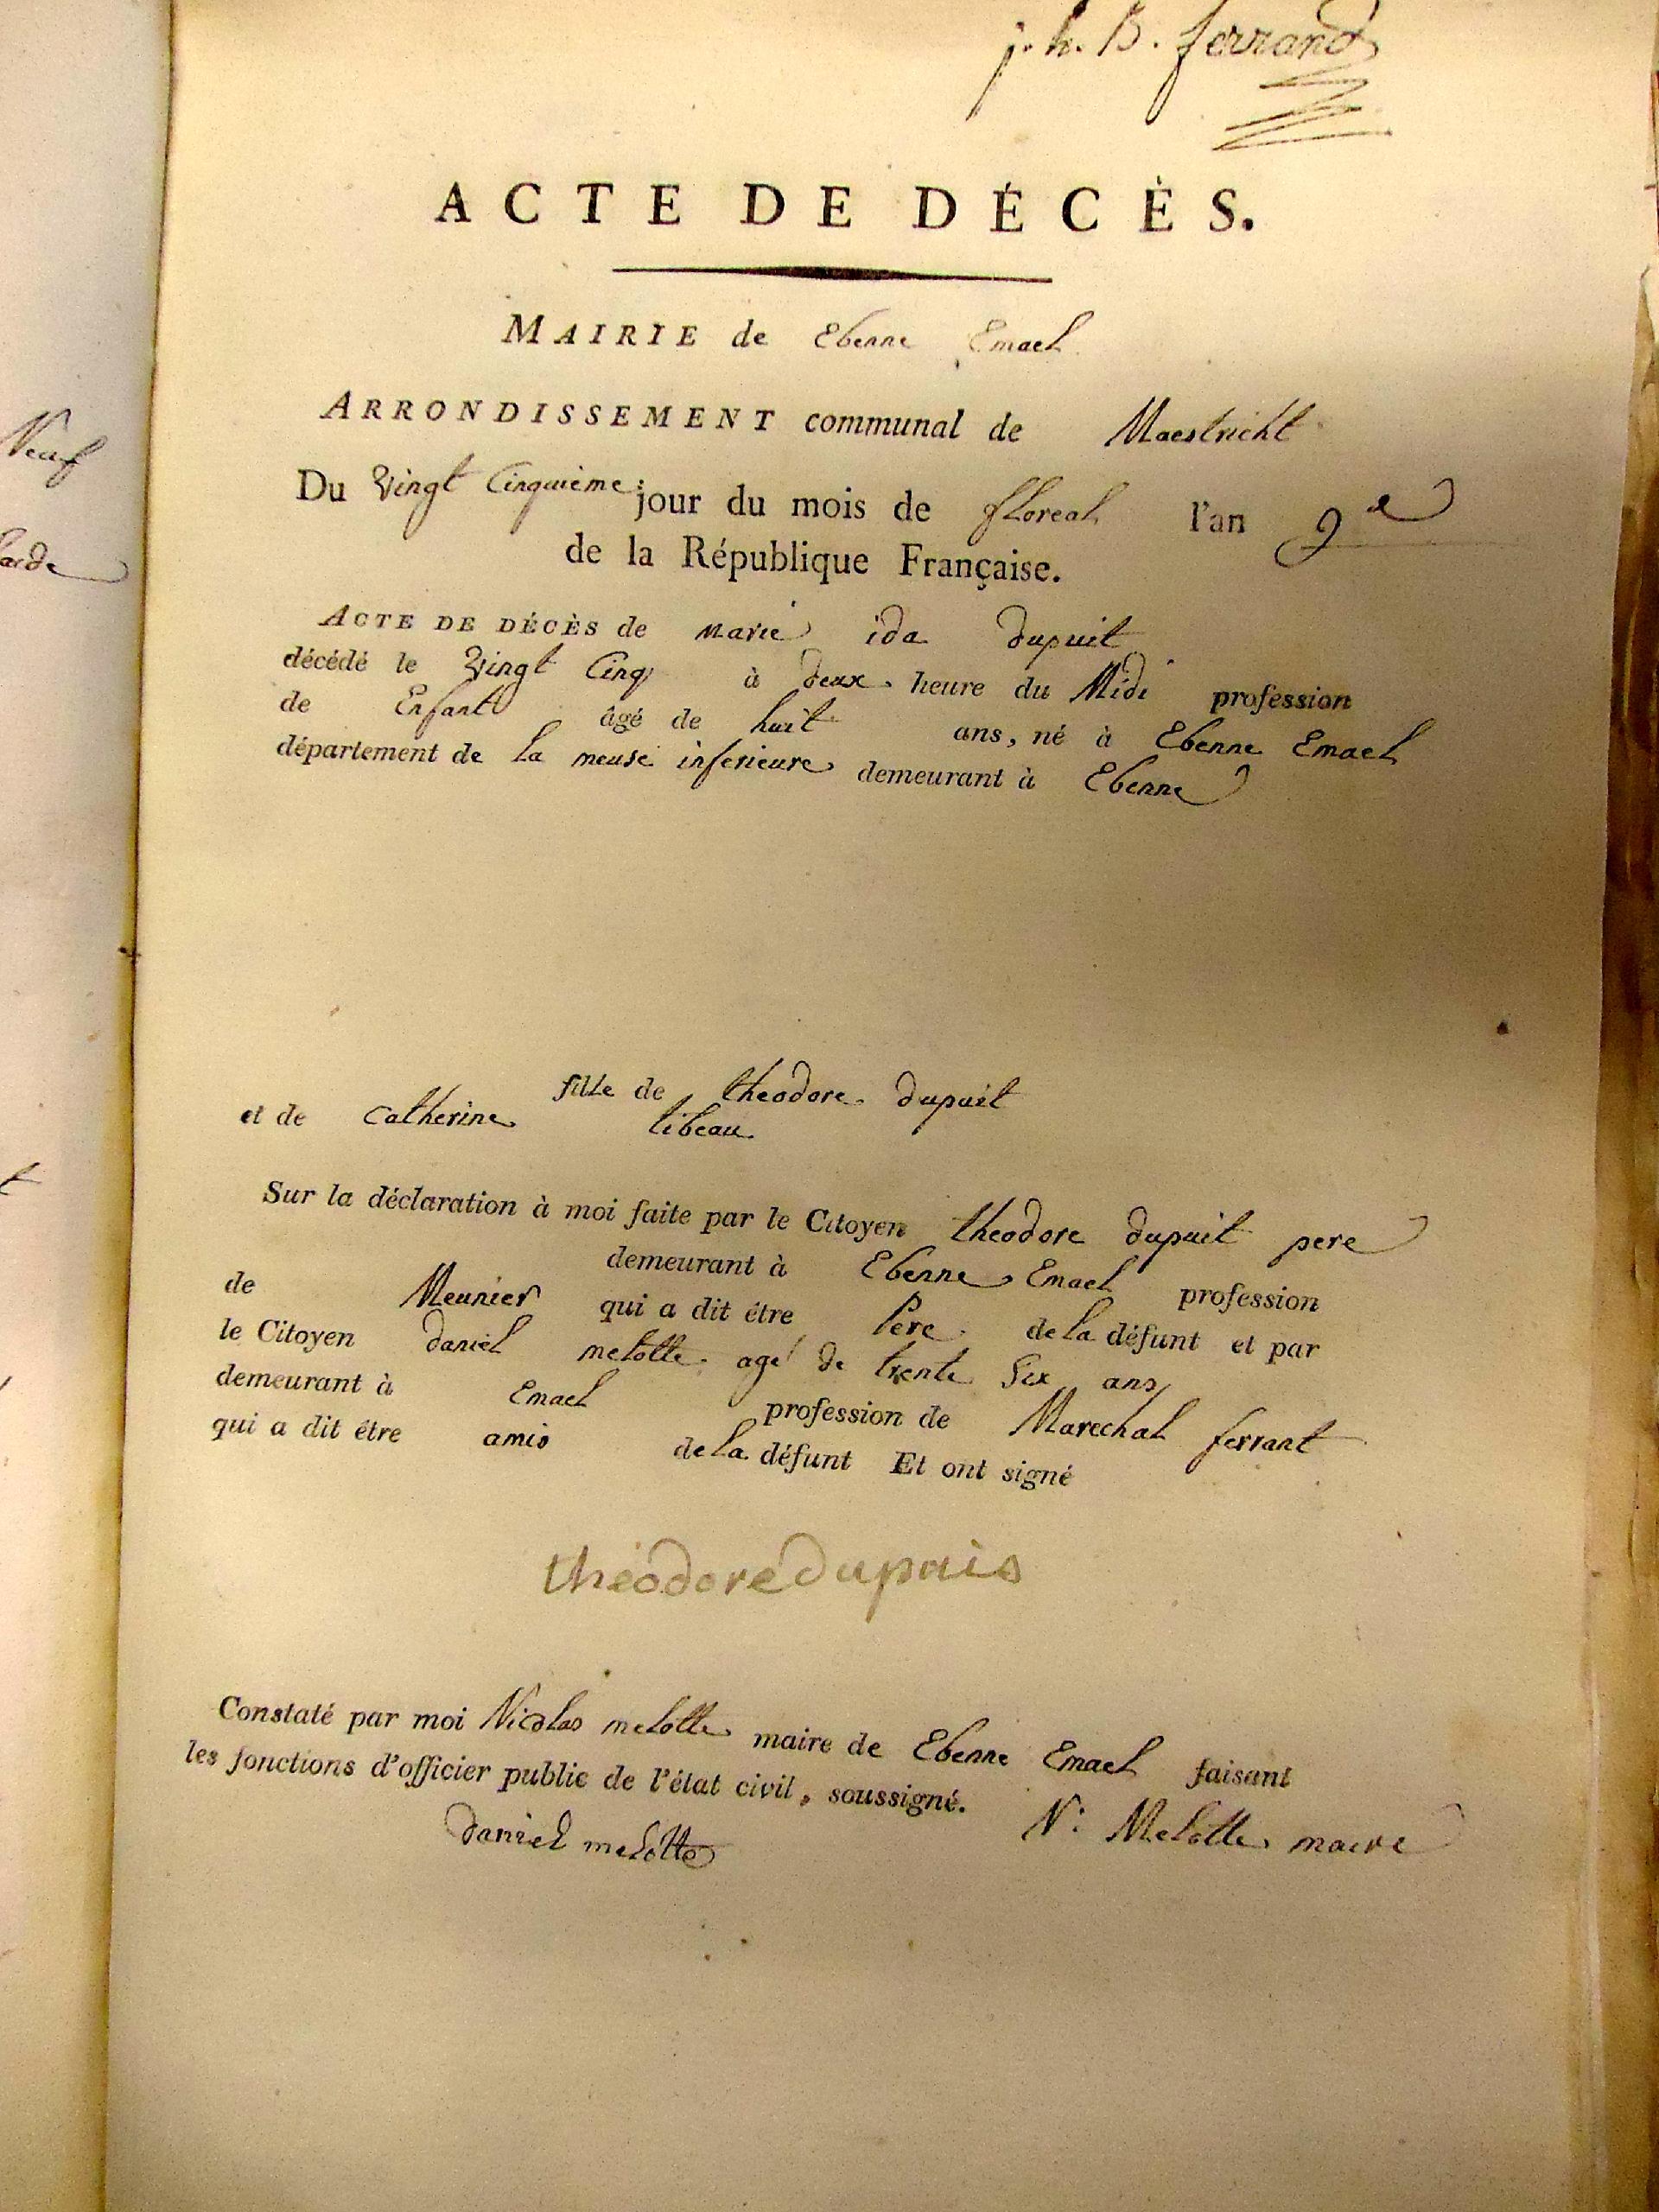 j. h. B. ferrand
ACTE DE DÉCÈS.
MAIRIE de Ebenne Emael
ARRONDISSEMENT communal de Maestricht
Du Vingt Cinquième jour du mois de floreal l'an 9e
de la République Française.
ACTE DE DÉCÈS de marie ida dupuit
décédé le Vingt Cinq à deux heure du Midi profession
de Enfant âgé de huit ans, né à Ebenne Emael
département de la meuse inferieure demeurant à Ebenne
fille de theodore dupuit
et de Catherine libeau
Sur la déclaration à moi faite par le Citoyen theodore dupuit pere
demeurant à Ebenne Emael profession
de Meunier qui a dit être Pere de la défunt et par
le Citoyen daniel melotte agé de trente Six ans
demeurant à Emael profession de Marechal ferrant
qui a dit être amis de la défunt Et ont signé
theodore dupuis
Constaté par moi Nicolas melotte maire de Ebenne Emael faisant
les fonctions d'officier public de l'état civil, soussigné.
daniel melotte N: Melotte maire
Neuf